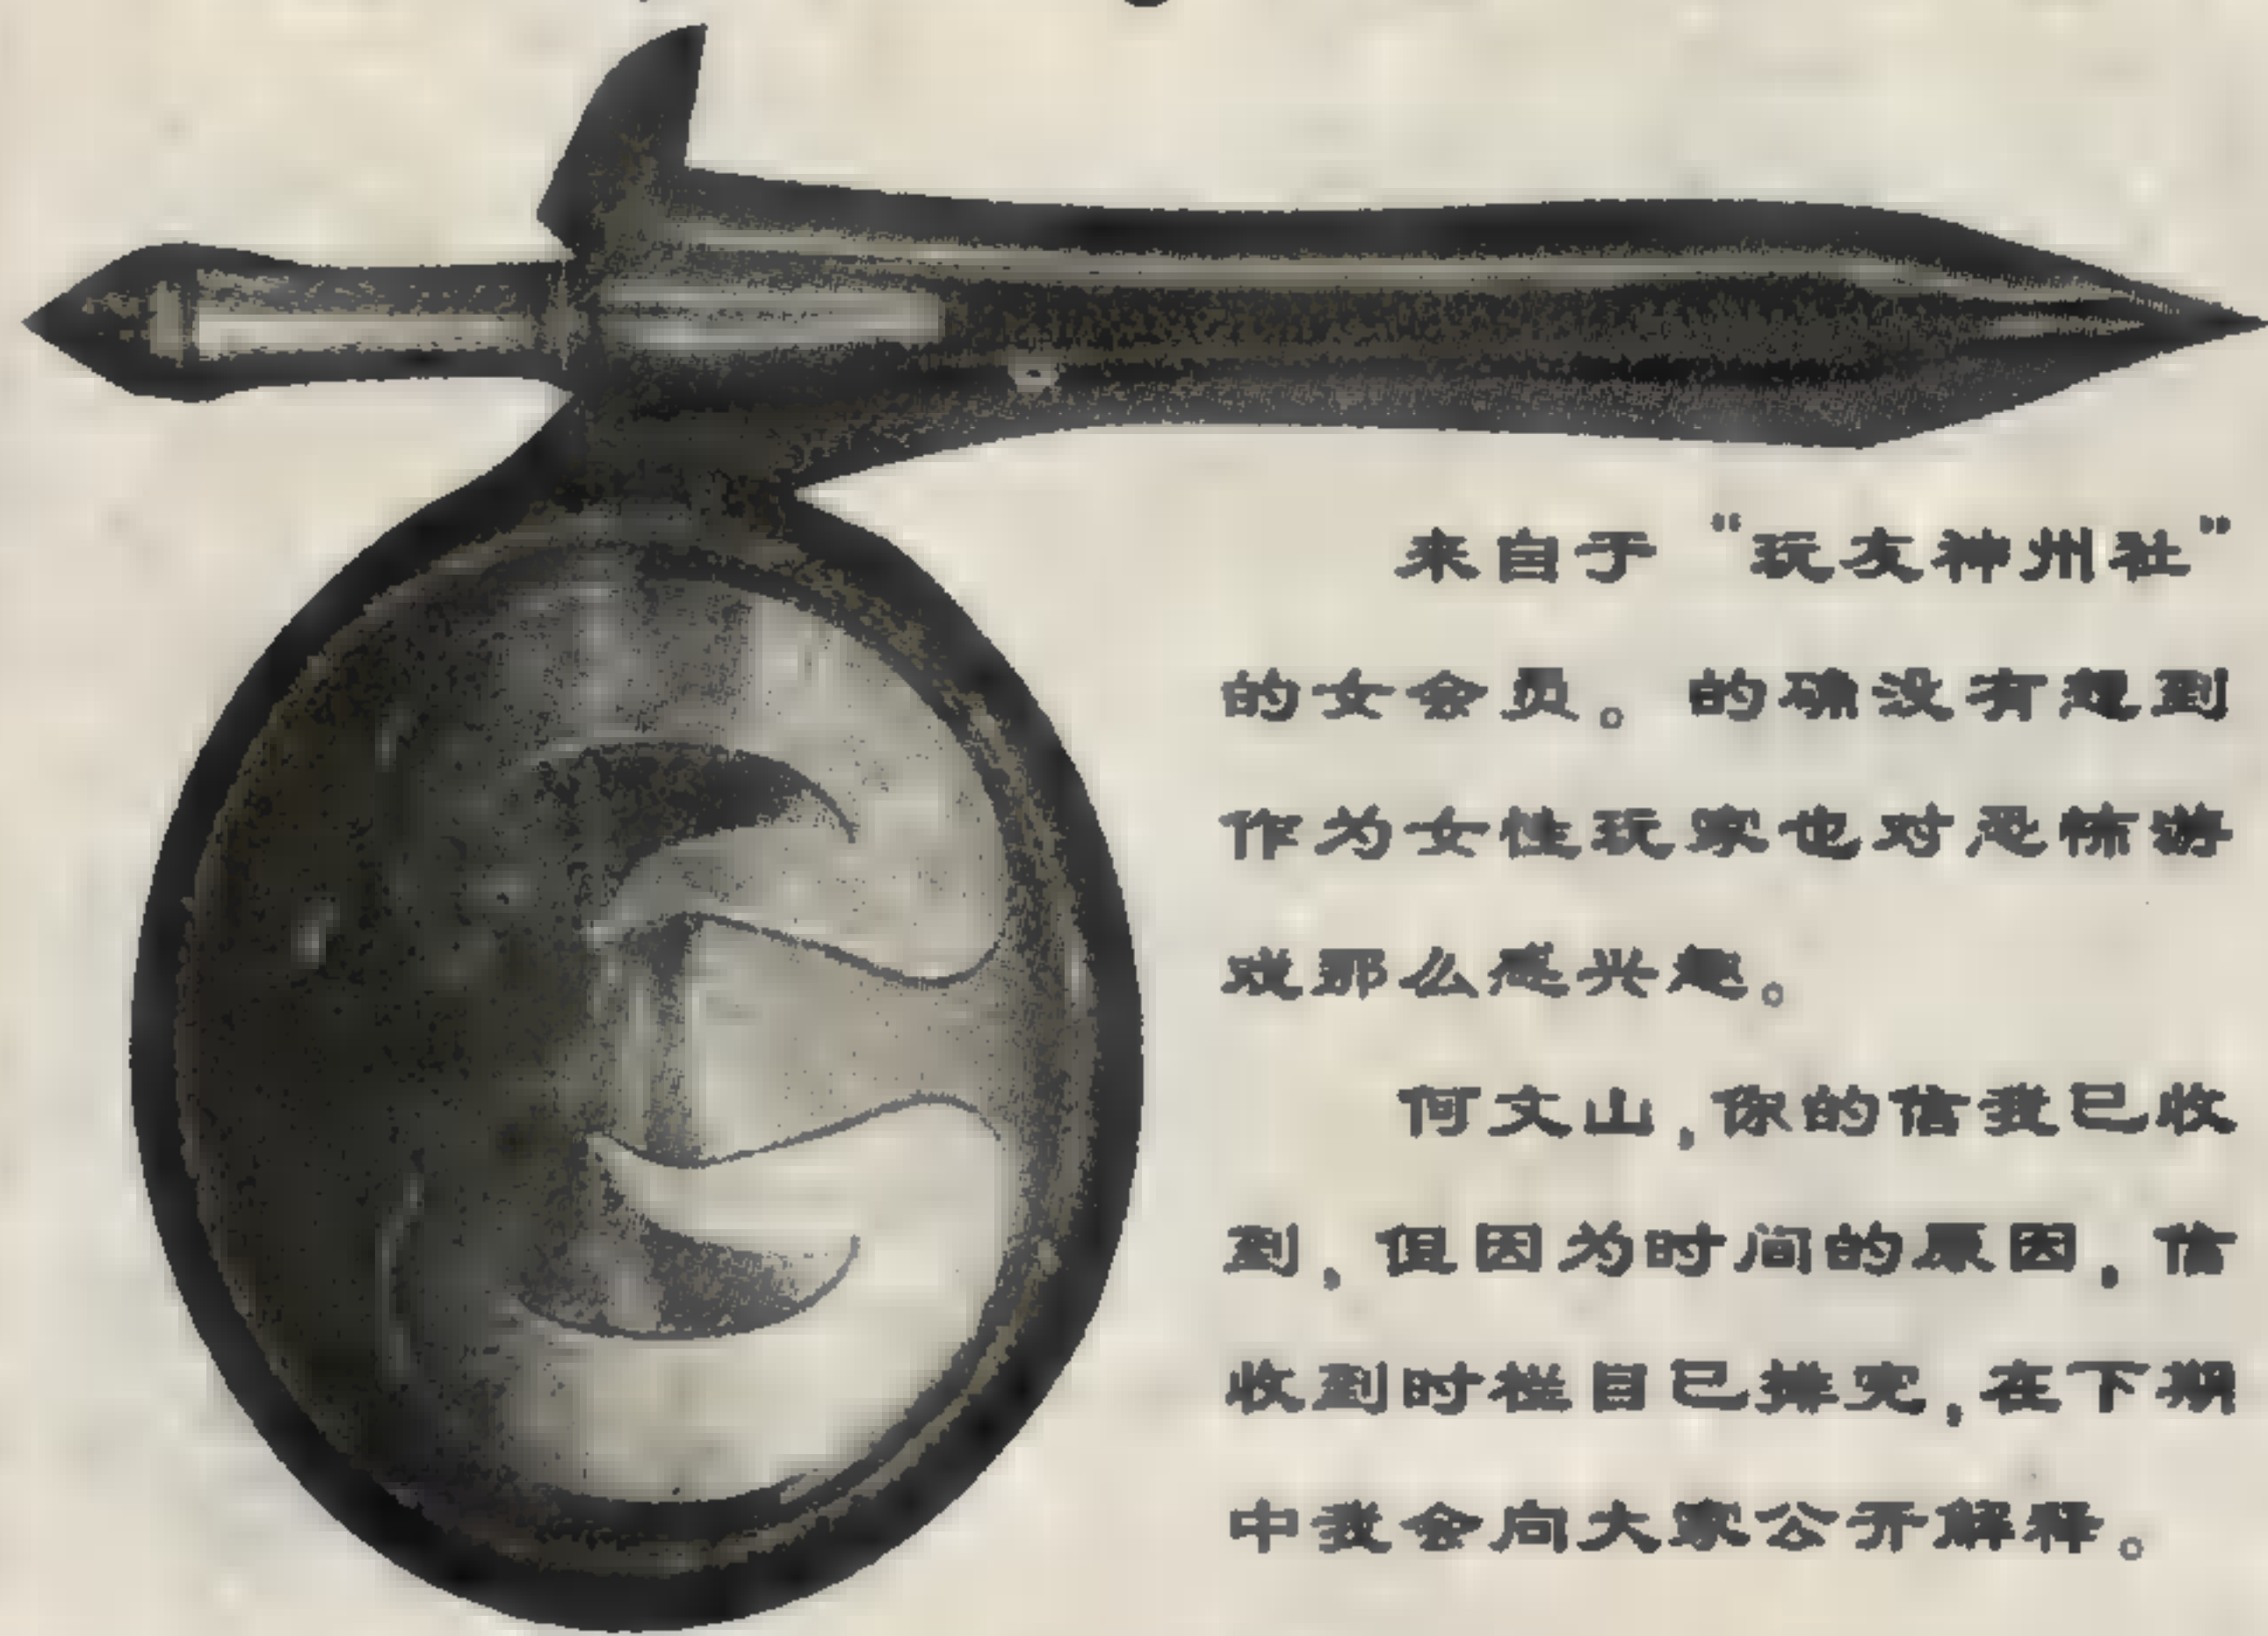 来自于“玩友神州社”
的女会员。的确没有想到
作为女性玩家也对恐怖游
戏那么感兴趣。
何文山,你的信我已收
到,但因为时间的原因,信
收到时栏目已排完,在下期
中我会向大家公开解释。